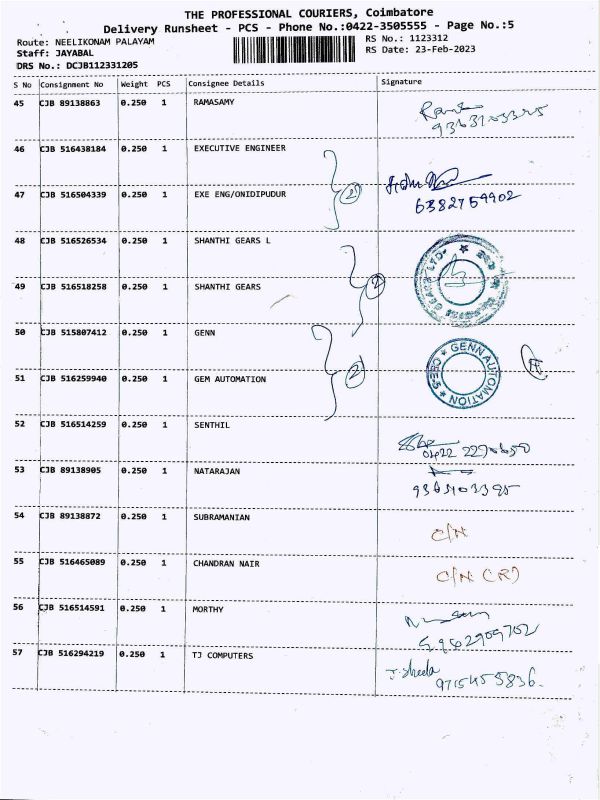 THE PROFESSIONAL COURIERS, Coimbatore
Delivery Runsheet - PCS - Phone No.:0422-3505555 - Page No.:5
Route: NEELIKONAM PALAYAM
RS No.: 1123312
Staff: JAYABAL
RS Date: 23-Feb-2023
DRS No.: DCJB112331205
S No Consignment No Weight PCS Consignee Details Signature
45 CJB 89138863 0.250 1 RAMASAMY
46 CJB 516438184 0.250 1 EXECUTIVE ENGINEER
47 CJB 516504339 0.250 1 EXE ENG/ONIDIPUDUR
2
6382759902
48 CJB 516526534 0.250 1 SHANTHI GEARS L
49 CJB 516518258 0.250 1 SHANTHI GEARS
2
50 CJB 515807412 0.250 1 GENN
GENN AUTOMATION
51 CJB 516259940 0.250 1 GEM AUTOMATION
2
52 CJB 516514259 0.250 1 SENTHIL
0422 2290650
53 CJB 89138905 0.250 1 NATARAJAN
54 CJB 89138872 0.250 1 SUBRAMANIAN
C/N
55 CJB 516465089 0.250 1 CHANDRAN NAIR
C/N (R)
56 CJB 516514591 0.250 1 MORTHY
57 CJB 516294219 0.250 1 TJ COMPUTERS
J. Sheela
9715455836.